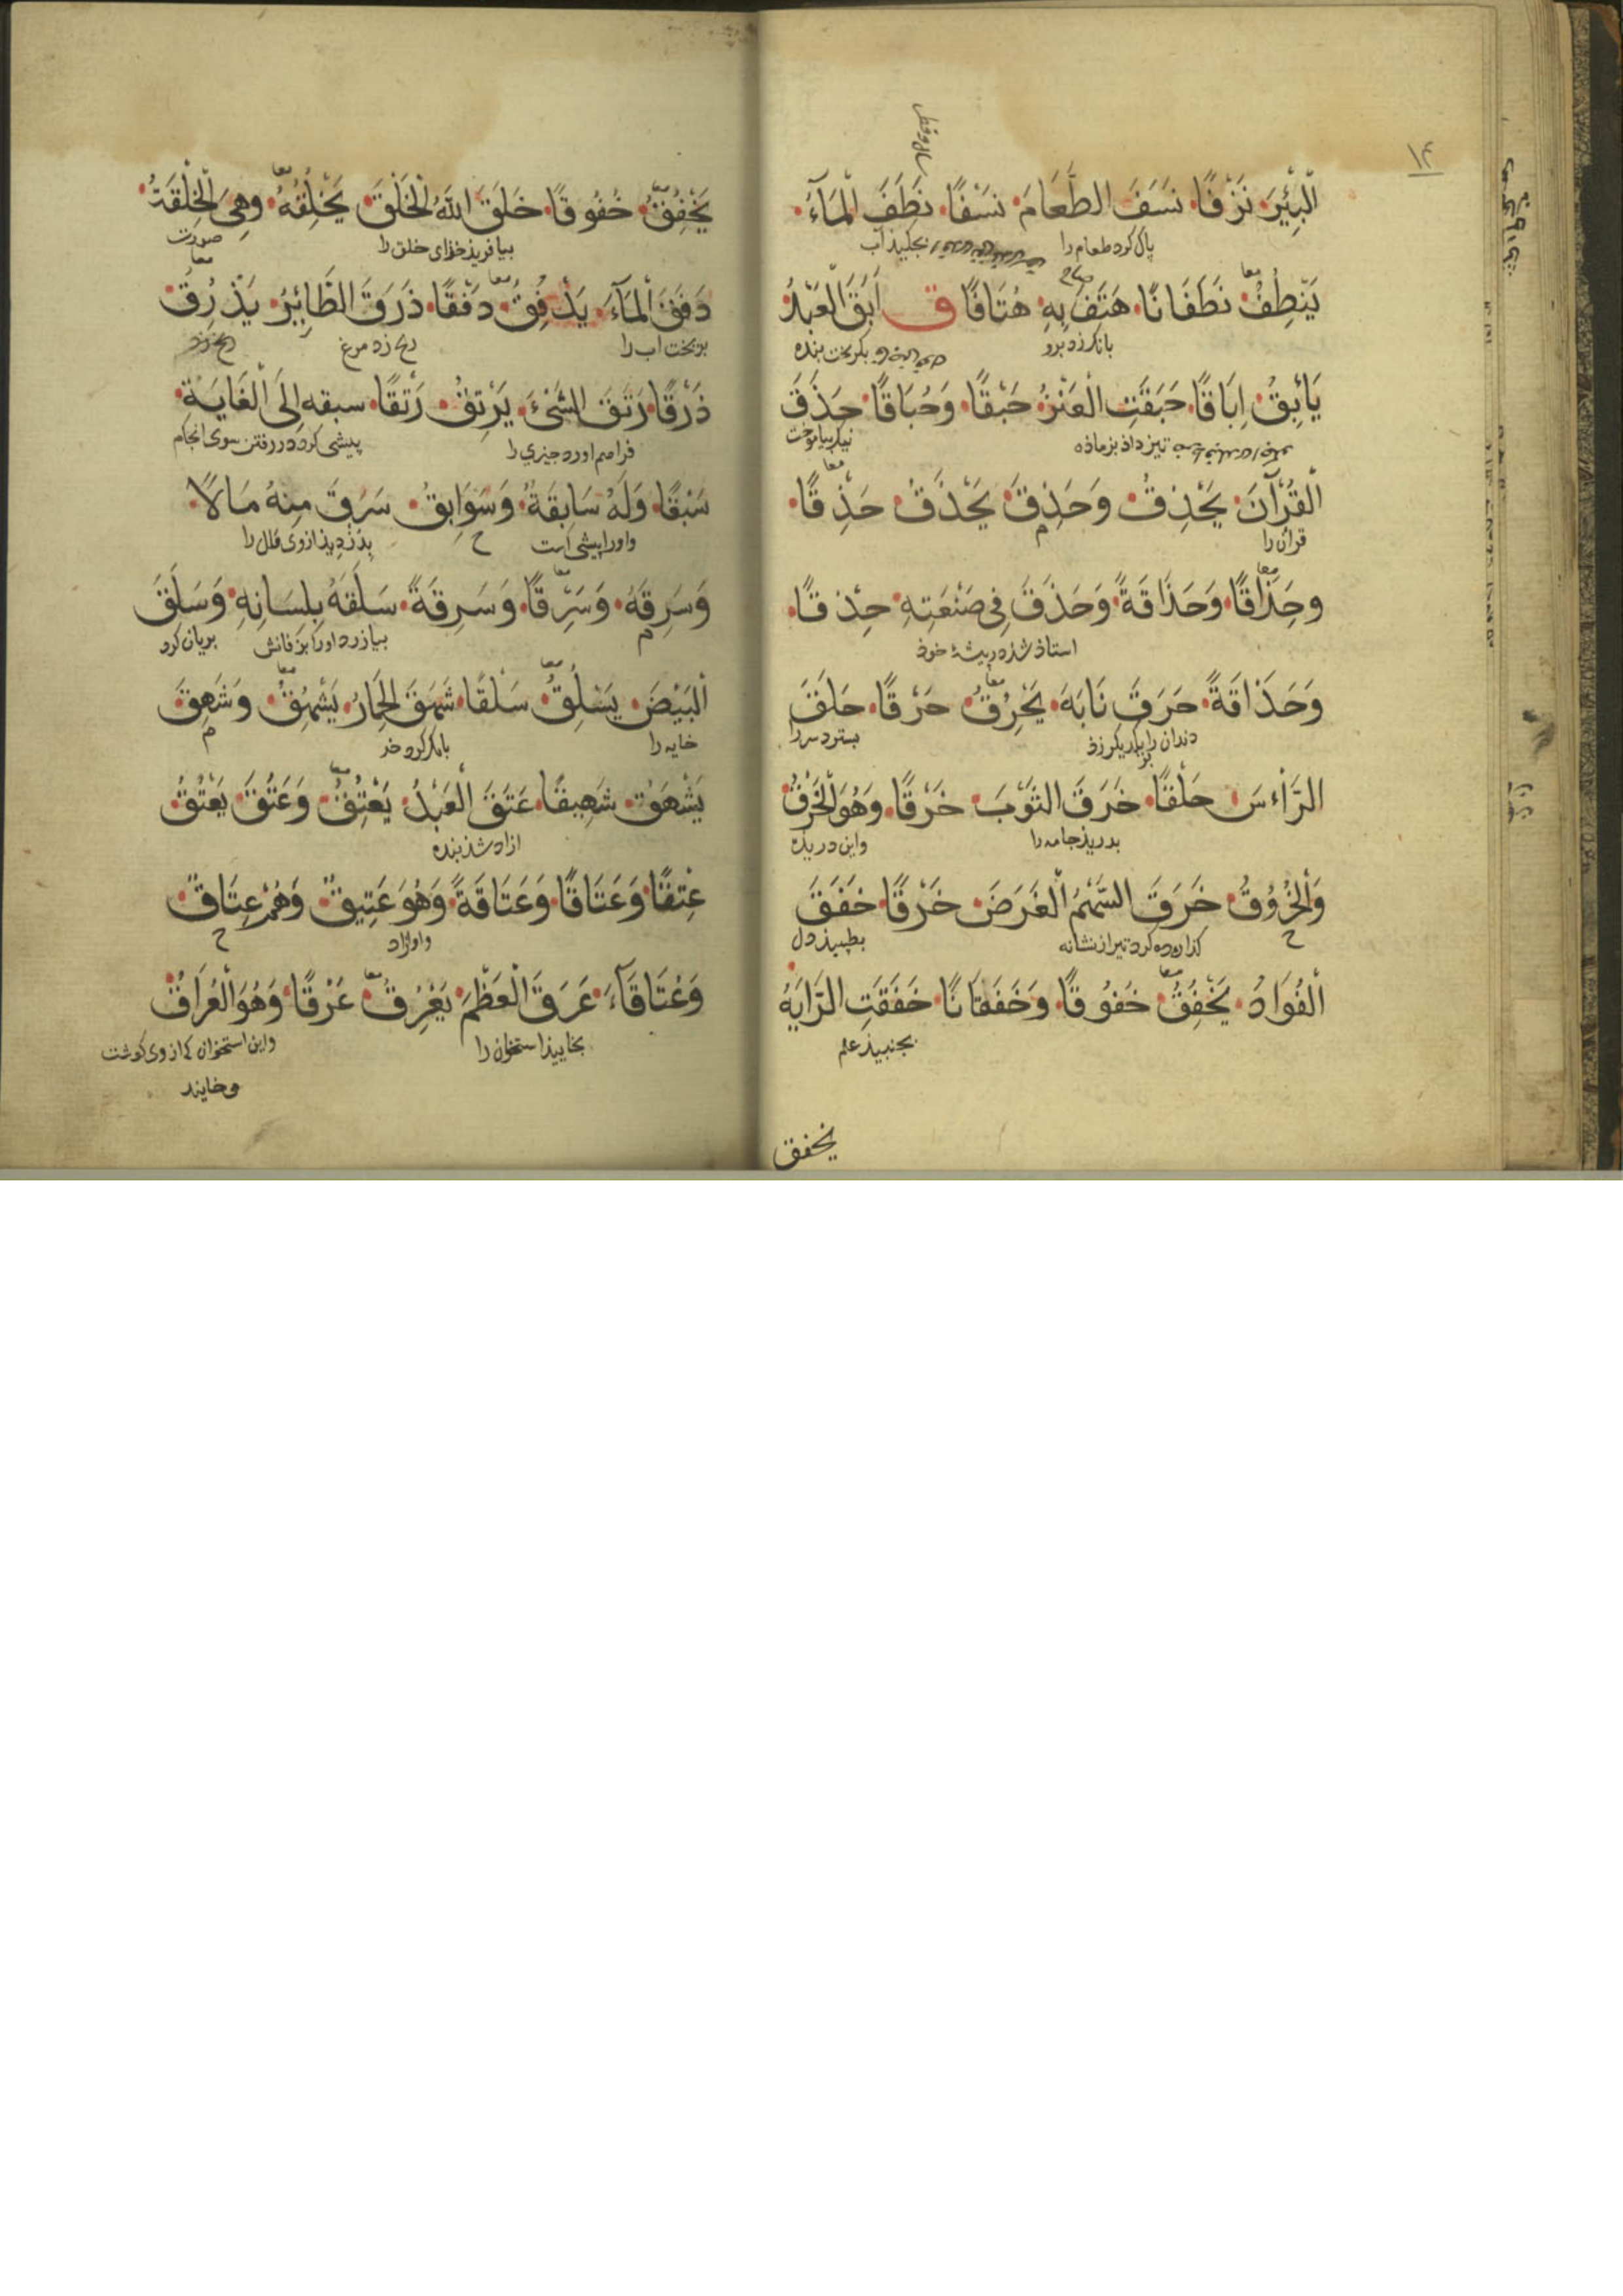 ۱۴
الْبِئْرَ نَزْفًا نَسَفَ الطَّعَامَ نَسْفًا نَطَفَ الْمَآءُ
پاك كرد طعام را بچكيذ آب
يَنْطِفُ نَطَفَانًا هَتَفَ بِهِ هُتَافًا ق اَبَقَ الْعَبْدُ
بانك زد برو بكريخت بنده
يَأْبِقُ اِبَاقًا حَبَقَتِ الْعَنْزُ حَبْقًا وَحُبَاقًا حَذَقَ
تيز داذ بز ماذه نيك بياموخت
الْقُرْآنَ يَحْذِقُ وَحَذِقَ يَحْذَقُ حَذِقًا
قرآن را
وحَِذَاقًا وَحَذَاقَةً وَحَذَقَ فِى صَنْعَتِهِ حِذقًا
استاذ شذ در پيشهٔ خوذ
وَحَذَاقَةً حَرَقَ نَابَهُ يَحْرُِقُ حَرْقًا حَلَقَ
دندان را بيكديكر زذ بسترد سر را
الرَّاْسَ حَلْقًا خَرَقَ الثَوْبَ خَرْقًا وَهُوَ الْخَرْقُ
بدريذ جامه را واين دريذه
وَالْخُرُوْقُ خَرَقَ السَّهْمُ الْغَرَضَ خَرْقًا خَفَقَ
كذاره كرد تير از نشانه بطپيذ دل
الْفُوَادُ يَخْفُِقُ خفُوقًا وَخَفَقَانًا خَفَقَتِ الرَّايَهُ
بجنبيذ علم
يخفق
يَخْفُِقُ خُفُوقًا خَلَقَ اللهُ الْخَلْقَ يَخْلُِقُهُ وَهِىَ الْخِلْقَةُ
بيافريذ خذاى خلق را صورت
دَفَقَ الْمَآءَ يَدْفُِقُ دَفْقًا ذَرَقَ الطَّائِرُ يَذْرُِقُ
بريخت اب را ريخ زد مرغ
ذَرْقًا رَتَقَ الشَىْءَ يَرْتِقُ رَتْقًا سبقه اِلَى الْغَايَةِ
فراهم اورد چيزي را پيشى كرد در رفتن سوى انجام
سَبْقًا وَلَهُ سَابِقَةٌ وَسَوَابِقُ سَرَقَ مِنهُ مَالاً
واورا پيشى است بدزديذ از وى مال را
وَسَرِقَهُ وَسَرِْقًا وَسَرِقَةً سَلَقَهُ بِلِسَانِهِ وَسَلَقَ
بيازرد اورا بزفانش بريان كرد
الْبَيْضَ يَسْلُِقُ سَلْقًا شَهَقَ الْحِمَارُ يَشْهَِقُ وَشَهِقَ
خايه را بانك كرد خر
يَشْهَقُ شَهِيقًا عَتَقَ الْعَبْدُ يَعْتُِقُ وَعَتُقَ يَعْتُقُ
ازاد شذ بنده
عِتقًا وَعَتَاقًا وَعَتَاقَةً وَهُوَ عَتِيقٌ وَهُمْ عِتَاقٌ
واو ازاد
وَعُتَاقَآءَ عَرَقَ الْعَظْمَ يَعْرُِقُ عَرْقًا وَهُوَ الْعُرَاقُ
بخاييذ استخوان را واين استخوان كه از وى كوشت
وخايند